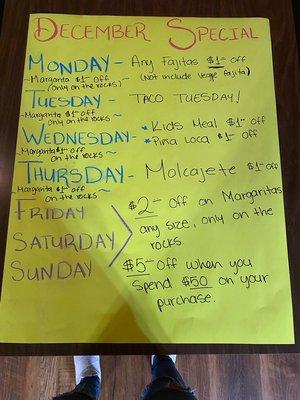 DECEMBER SPECIAL
MONDAY - Any Fajitas $1- off
~Margarita $1- off (Not include Veggie fajita)
(only on the rocks)~
TUESDAY - TACO TUESDAY!
~Margarita $1- off
only on the rocks~
WEDNESDAY - * Kids Meal $1- off
~Margarita $1- off * Pina Loca $1- off
on the rocks~
THURSDAY - Molcajete $1- off
~Margarita $1- off
on the rocks~
FRIDAY $2- off on Margaritas
SATURDAY any size, only on the
rocks
SUNDAY $5- off when you
spend $50 on your
purchase.